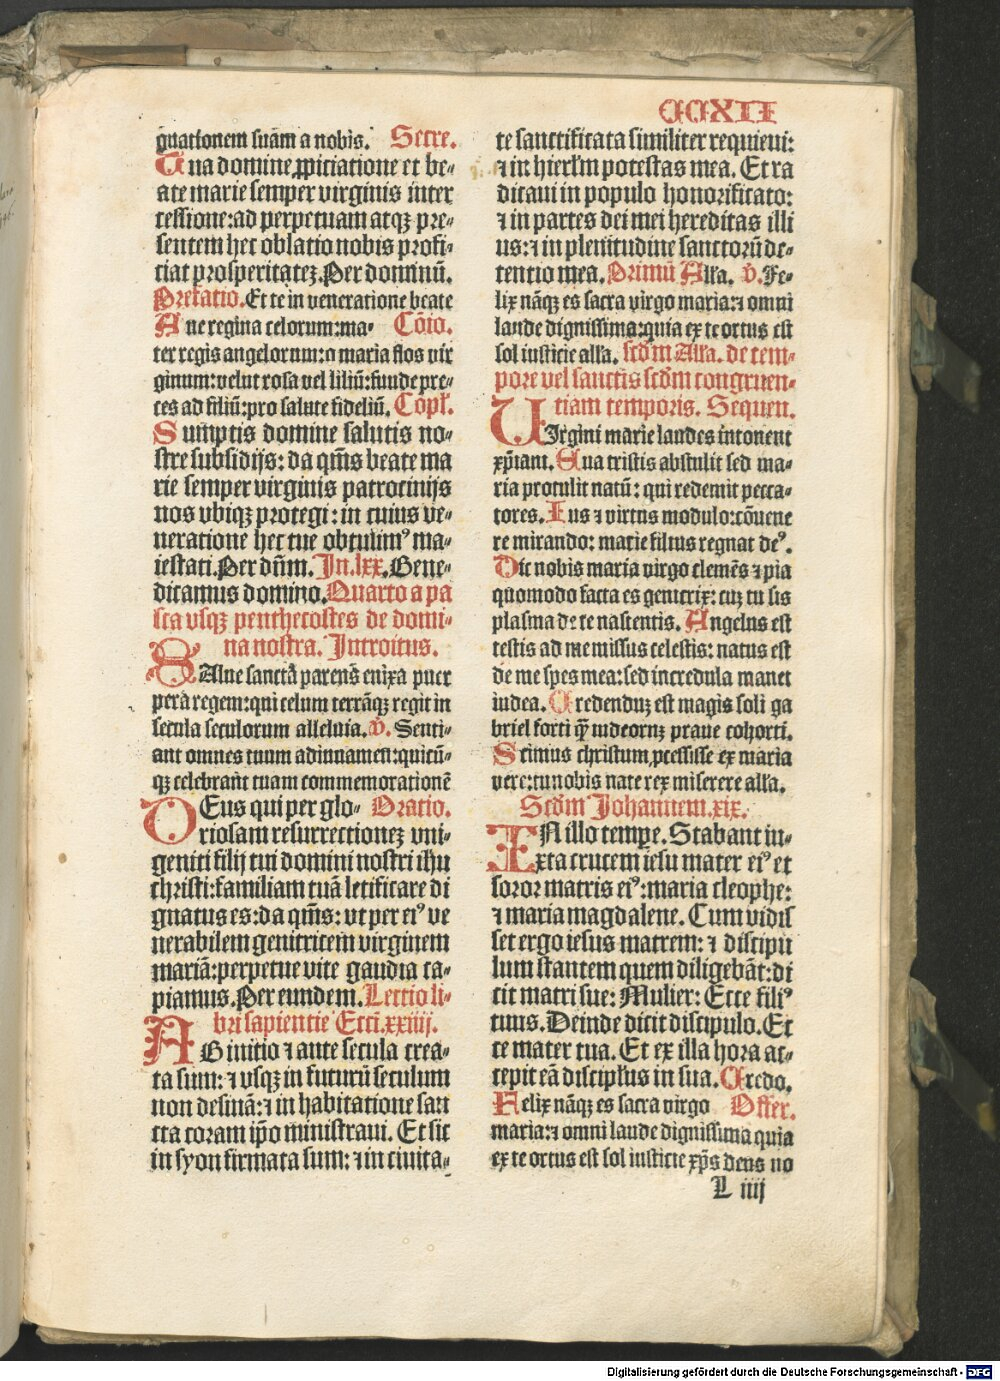 CCXII
gnationem suam a nobis. Secre.
Tua domine ꝓpiciatione et be⸗
ate marie semper virginis inter
cessione:ad perpetuam atqꝫ pre⸗
sentem hec oblatio nobis profi⸗
ciat prosperitateꝫ. Per dominū.
Prefatio. Et te in veneratione beate
Aue regina celorum:ma⸗ Cōio.
ter regis angelorum:o maria flos vir
ginum:velut rosa vel liliū:funde pre⸗
ces ad filiū:pro salute fideliū. Copl.
Sumptis domine salutis no⸗
stre subsidijs: da qm̄s beate ma
rie semper virginis patrocinijs
nos vbiqꝫ protegi: in cuius ve⸗
neratione hec tue obtulimꝰ ma⸗
iestati. Per dn̄m. In .lxx. Bene⸗
dicamus domino. Quarto a pa
sca vsqꝫ penthecostes de domi⸗
na nostra. Introitus.
SAlue sancta parens enixa puer
pera regem:qui celum terrāqꝫ regit in
secula seculorum alleluia. v̄. Senti⸗
ant omnes tuum adiuuamen:quicū⸗
qꝫ celebrant tuam commemorationē
DEus qui per glo⸗ Oratio.
riosam resurrectioneꝫ vni⸗
geniti filij tui domini nostri ihu
christi:familiam tuā letificare di
gnatus es:da qm̄s: vt per eiꝰ ve
nerabilem genitricem virginem
mariā:perpetue vite gaudia ca⸗
piamus. Per eundem. Lectio li⸗
bri sapientie Ecci. xxiiij.
AB initio ⁊ ante secula crea⸗
ta sum: ⁊ vsqꝫ in futurū seculum
non desinā:⁊ in habitatione san
cta coram ip̄o ministraui. Et sic
in syon firmata sum: ⁊ in ciuita⸗
te sanctificata similiter requieui:
⁊ in hierłm potestas mea. Et ra
dicaui in populo honorificato:
⁊ in partes dei mei hereditas illi
us:⁊ in plenitudine sanctorū de⸗
tentio mea. Primū Alla. v̄. Fe⸗
lix nāqꝫ es sacra virgo maria:⁊ omni
laude dignissima:quia ex te ortus est
sol iusticie alla. scd̄m Alla. de tem⸗
pore vel sanctis scd̄m congruen⸗
tiam temporis. Sequen.
VIrgini marie laudes intonent
xp̄iani. Eua tristis abstulit sed ma⸗
ria protulit natū: qui redemit pecca⸗
tores. Ius ⁊ virtus modulo:cōuene
re mirando: marie filius regnat deꝰ.
Dic nobis maria virgo clemēs ⁊ pia
quomodo facta es genitrix: cuꝫ tu sis
plasma de te nascentis. Angelus est
testis ad me missus celestis: natus est
de me spes mea:sed incredula manet
iudea. Credenduꝫ est magis soli ga
brieli forti q̄ȝ iudeorum praue cohorti.
Scimus christum ꝓcessisse ex maria
vere:tu nobis nate rex miserere alla.
Scd̄m Johannem. xix.
IN illo tempe. Stabant iu⸗
xta crucem iesu mater eiꝰ et
soror matris eiꝰ:maria cleophe:
⁊ maria magdalene. Cum vidis
set ergo iesus matrem: ⁊ discipu
lum stantem quem diligebāt:di
cit matri sue: Mulier: Ecce filiꝰ
tuus. Deinde dicit discipulo. Ec
ce mater tua. Et ex illa hora ac⸗
cepit eā discipłus in sua. Credo.
Felix nāqꝫ es sacra virgo Offer.
maria:⁊ omni laude dignissima quia
ex te ortus est sol iusticie xp̄s deus no
L iiij
Digitalisierung gefördert durch die Deutsche Forschungsgemeinschaft - DFG